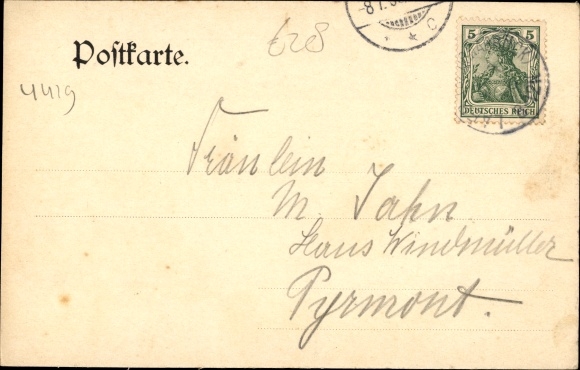 Postkarte.
628
4419
8 1.
* * C
5 5
DEUTSCHES REICH
Fräulein
M. Jahn
Haus Windmüller
Pyrmont.